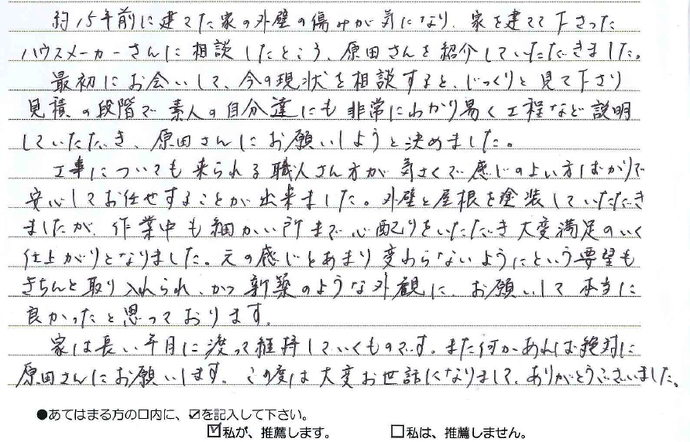 約15年前に建てた家の外壁の傷みが気になり、家を建てて下さった
ハウスメーカーさんに相談したところ、原田さんを紹介していただきました。
最初にお会いして、今の現状を相談すると、じっくりと見て下さり
見積の段階で素人の自分達にも非常にわかり易く工程など説明
していただき、原田さんにお願いしようと決めました。
工事についても来られる職人さん方が気さくで感じのよい方ばかりで
安心してお任せすることが出来ました。外壁と屋根を塗装していただき
ましたが、作業中も細かい所まで心配りをいただき大変満足のいく
仕上がりとなりました。元の感じとあまり変わらないようにという要望も
きちんと取り入れられ、かつ新築のような外観に、お願いして本当に
良かったと思っております。
家は長い年月に渡って維持していくものです。また何かあれば絶対に
原田さんにお願いします。この度は大変お世話になりまして、ありがとうございました。
●あてはまる方の口内に、☑を記入して下さい。
☑私が、推薦します。 □私は、推薦しません。